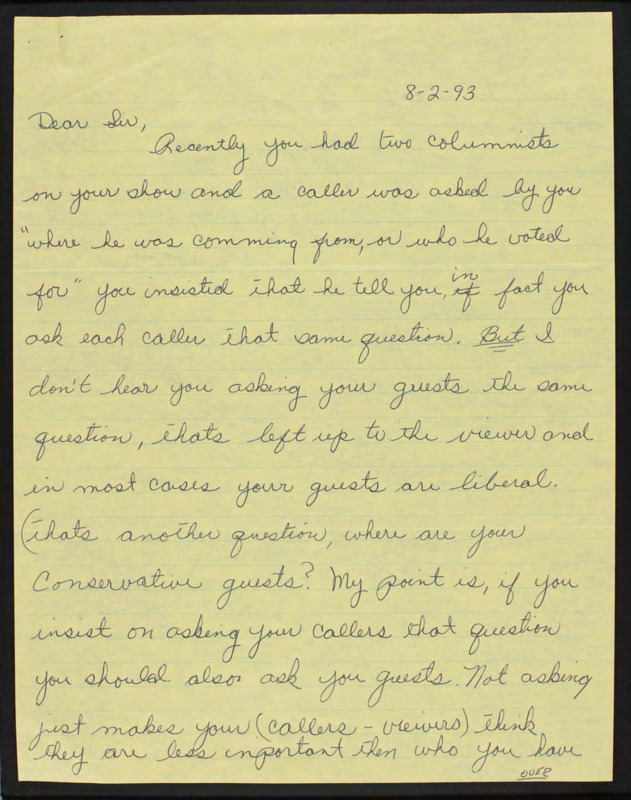 8-2-93
Dear Sir,
Recently you had two columnists
on your show and a caller was asked by you
"where he was comming from, or who he voted
for" you insisted that he tell you, in fact you
ask each caller that same question. But I
don't hear you asking your guests the same
question, thats left up to the viewer and
in most cases your guests are liberal.
(thats another question, where are your
Conservative guests? My point is, if you
insist on asking your callers that question
you should also ask you guests. Not asking
just makes your (callers - viewers) think
they are less important then who you have
OVER